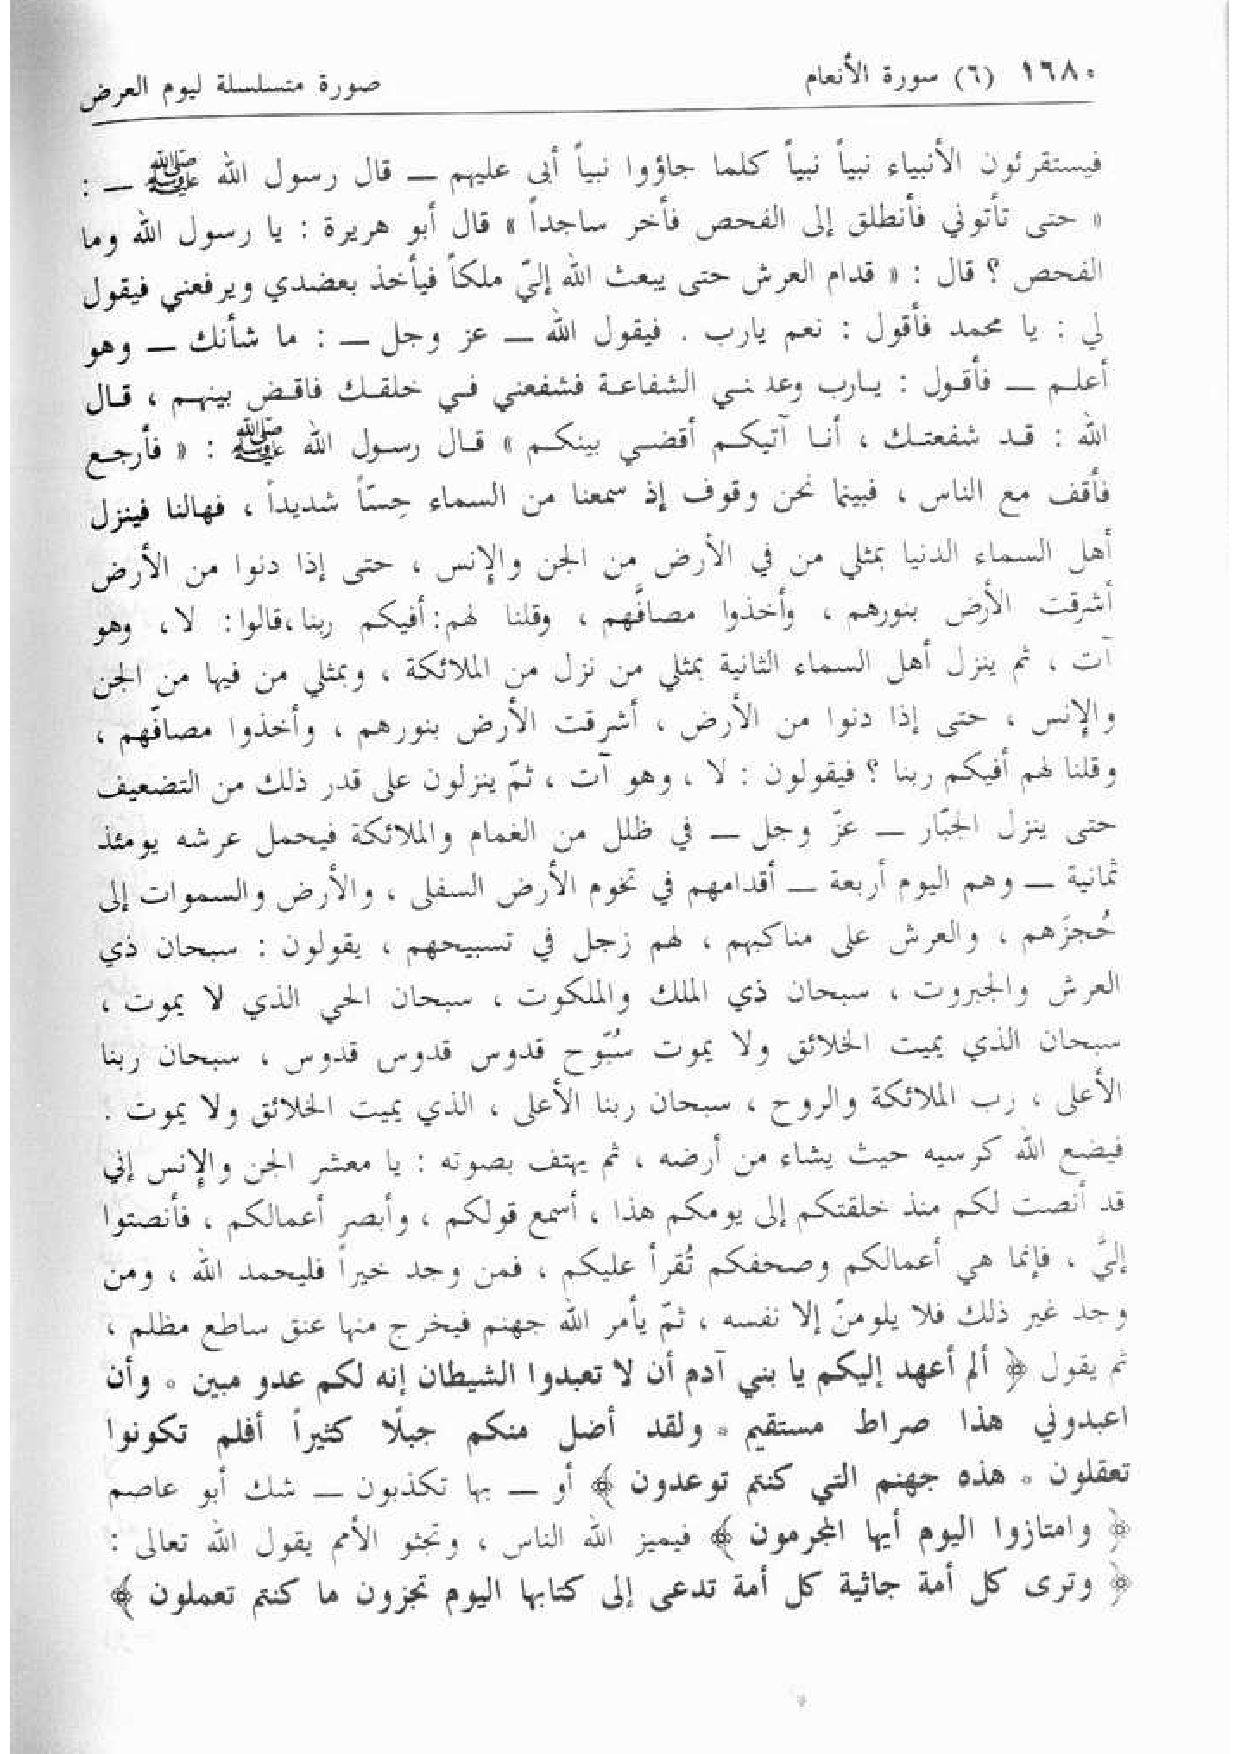 ١٦٨٠ (٦) سورة الأنعام صورة متسلسلة ليوم العرض
فيستقرئون الأنبياء نبياً نبياً كلما جاؤوا نبياً أبى عليهم — قال رسول الله ﷺ — :
« حتى تأتوني فأنطلق إلى الفحص فأخر ساجداً » قال أبو هريرة : يا رسول الله وما
الفحص ؟ قال : « قدام العرش حتى يبعث الله إليّ ملكاً فيأخذ بعضدي ويرفعني فيقول
لي : يا محمد فأقول : نعم يارب . فيقول الله — عز وجل — : ما شأنك — وهو
أعلم — فأقول : يارب وعدتني الشفاعة فشفعني في خلقك فاقض بينهم ، قال
الله : قد شفعتك ، أنا آتيكم أقضي بينكم » قال رسول الله ﷺ : « فأرجع
فأقف مع الناس ، فبينما نحن وقوف إذ سمعنا من السماء حِسّاً شديداً ، فهالنا فينزل
أهل السماء الدنيا بمثلي من في الأرض من الجن والإنس ، حتى إذا دنوا من الأرض
أشرقت الأرض بنورهم ، وأخذوا مصافَّهم ، وقلنا لهم: أفيكم ربنا،قالوا: لا، وهو
آت ، ثم ينزل أهل السماء الثانية بمثلي من نزل من الملائكة ، وبمثلي من فيها من الجن
والإنس ، حتى إذا دنوا من الأرض ، أشرقت الأرض بنورهم ، وأخذوا مصافّهم ،
وقلنا لهم أفيكم ربنا ؟ فيقولون : لا ، وهو آت ، ثمّ ينزلون على قدر ذلك من التضعيف
حتى ينزل الجبّار — عزّ وجل — في ظلل من الغمام والملائكة فيحمل عرشه يومئذ
ثمانية — وهم اليوم أربعة — أقدامهم في تخوم الأرض السفلى ، والأرض والسموات إلى
حُجزَهم ، والعرش على مناكبهم ، لهم زجل في تسبيحهم ، يقولون : سبحان ذي
العرش والجبروت ، سبحان ذي الملك والملكوت ، سبحان الحي الذي لا يموت ،
سبحان الذي يميت الخلائق ولا يموت سُبّوح قدوس قدوس قدوس ، سبحان ربنا
الأعلى ، رب الملائكة والروح ، سبحان ربنا الأعلى ، الذي يميت الخلائق ولا يموت .
فيضع الله كرسيه حيث يشاء من أرضه ، ثم يهتف بصوته : يا معشر الجن والإنس إني
قد أنصت لكم منذ خلقتكم إلى يومكم هذا ، أسمع قولكم ، وأبصر أعمالكم ، فأنصتوا
إليَّ ، فإنما هي أعمالكم وصحفكم تُقرأ عليكم ، فمن وجد خيراً فليحمد الله ، ومن
وجد غير ذلك فلا يلومنّ إلا نفسه ، ثمّ يأمر الله جهنم فيخرج منها عنق ساطع مظلم ،
ثم يقول ﴿ ألم أعهد إليكم يا بني آدم أن لا تعبدوا الشيطان إنه لكم عدو مبين * وأن
اعبدوني هذا صراط مستقيم * ولقد أضل منكم جبلًا كثيراً أفلم تكونوا
تعقلون * هذه جهنم التي كنتم توعدون ﴾ أو — بها تكذبون — شك أبو عاصم
﴿ وامتازوا اليوم أيها المجرمون ﴾ فيميز الله الناس ، وتجثو الأمم يقول الله تعالى :
﴿ وترى كل أمة جاثية كل أمة تدعى إلى كتابها اليوم تجزون ما كنتم تعملون ﴾